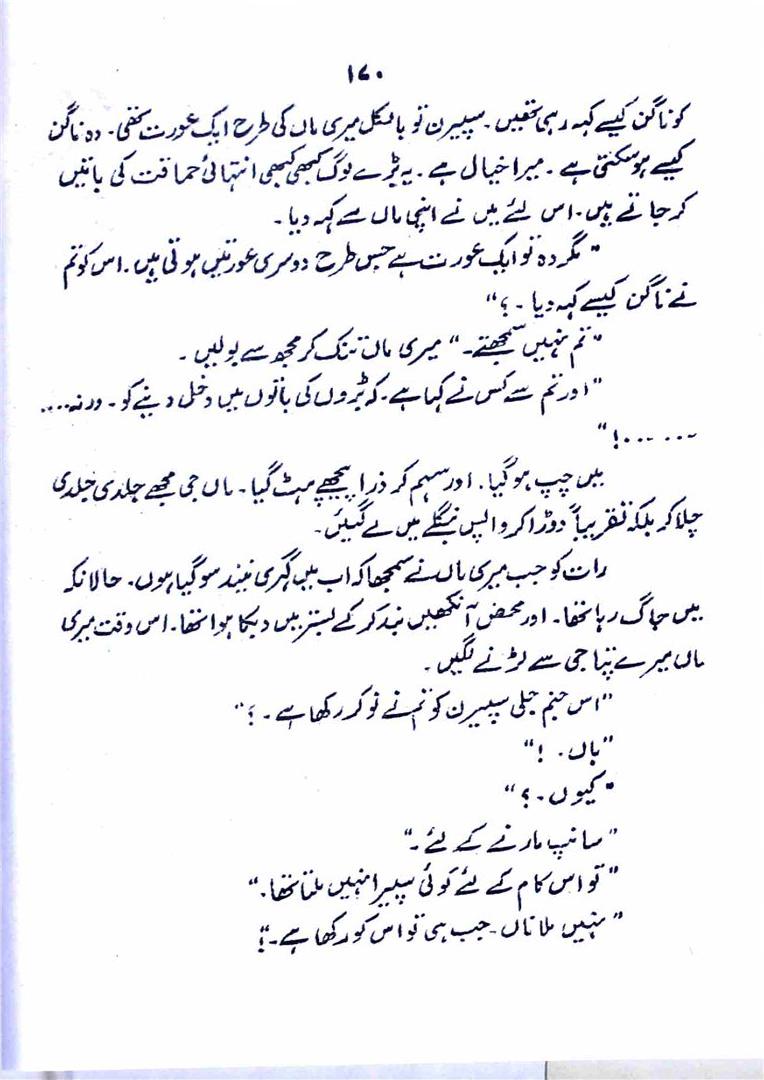 ۱۷۰
کو ناگن کیسے کہہ رہی تھیں۔ سپیرن تو بالکل میری ماں کی طرح ایک عورت تھی۔ وہ ناگن
کیسے ہو سکتی ہے۔ میرا خیال ہے۔ یہ بڑے لوگ کبھی کبھی انتہائی حماقت کی باتیں
کر جاتے ہیں۔ اس لئے میں نے اپنی ماں سے کہہ دیا۔
"مگر وہ تو ایک عورت ہے جس طرح دوسری عورتیں ہوتی ہیں۔ اس کو تم
نے ناگن کیسے کہہ دیا۔؟"
"تم نہیں سمجھتے۔" میری ماں تنک کر مجھ سے بولیں۔
"اور تم سے کس نے کہا ہے۔ کہ بڑوں کی باتوں میں دخل دینے کو۔ ورنہ....
......!"
میں چپ ہو گیا۔ اور سہم کر ذرا پیچھے ہٹ گیا۔ ماں جی مجھے جلدی جلدی
چلا کر بلکہ تقریباً دوڑا کر واپس بنگلے میں لے گئیں۔
رات کو جب میری ماں نے سمجھا کہ اب میں گہری نیند سو گیا ہوں۔ حالانکہ
میں جاگ رہا تھا۔ اور محض آنکھیں بند کر کے بستر میں دبکا ہوا تھا۔ اس وقت میری
ماں میرے پتا جی سے لڑنے لگیں۔
"اس جنم جلی سپیرن کو تم نے نوکر رکھا ہے۔؟"
"ہاں۔!"
"کیوں۔؟"
"سانپ مارنے کے لئے۔"
"تو اس کام کے لئے کوئی سپیرا نہیں ملتا تھا۔"
"نہیں ملا ناں۔ جب ہی تو اس کو رکھا ہے۔"؟